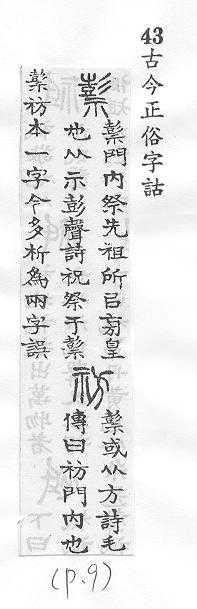 43 古今正俗字詁
𥛱
𥛱門內祭先祖所㠯旁皇
也从示彭聲詩祝祭于𥛱
祊
𥛱或从方詩毛
傳曰祊門內也
𥛱祊本一字今多析爲兩字誤
(p.9)